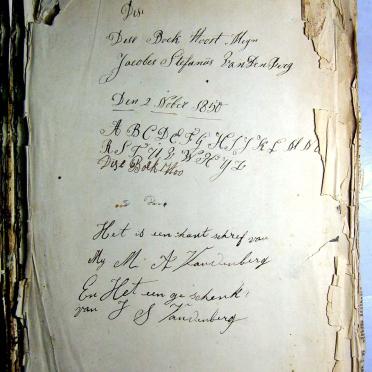 Dese
Dese Boek Hoort Meyn
Jacobus Stefanus VanDenBerg
Den 2 1850
A B C D E F G H I J K L M N O
R S T U V W X Y Z
Dese Boek Hoo
Het is een hant schref van
My M A Vandenberg
En Het een ge schenk
van J S Vandenberg